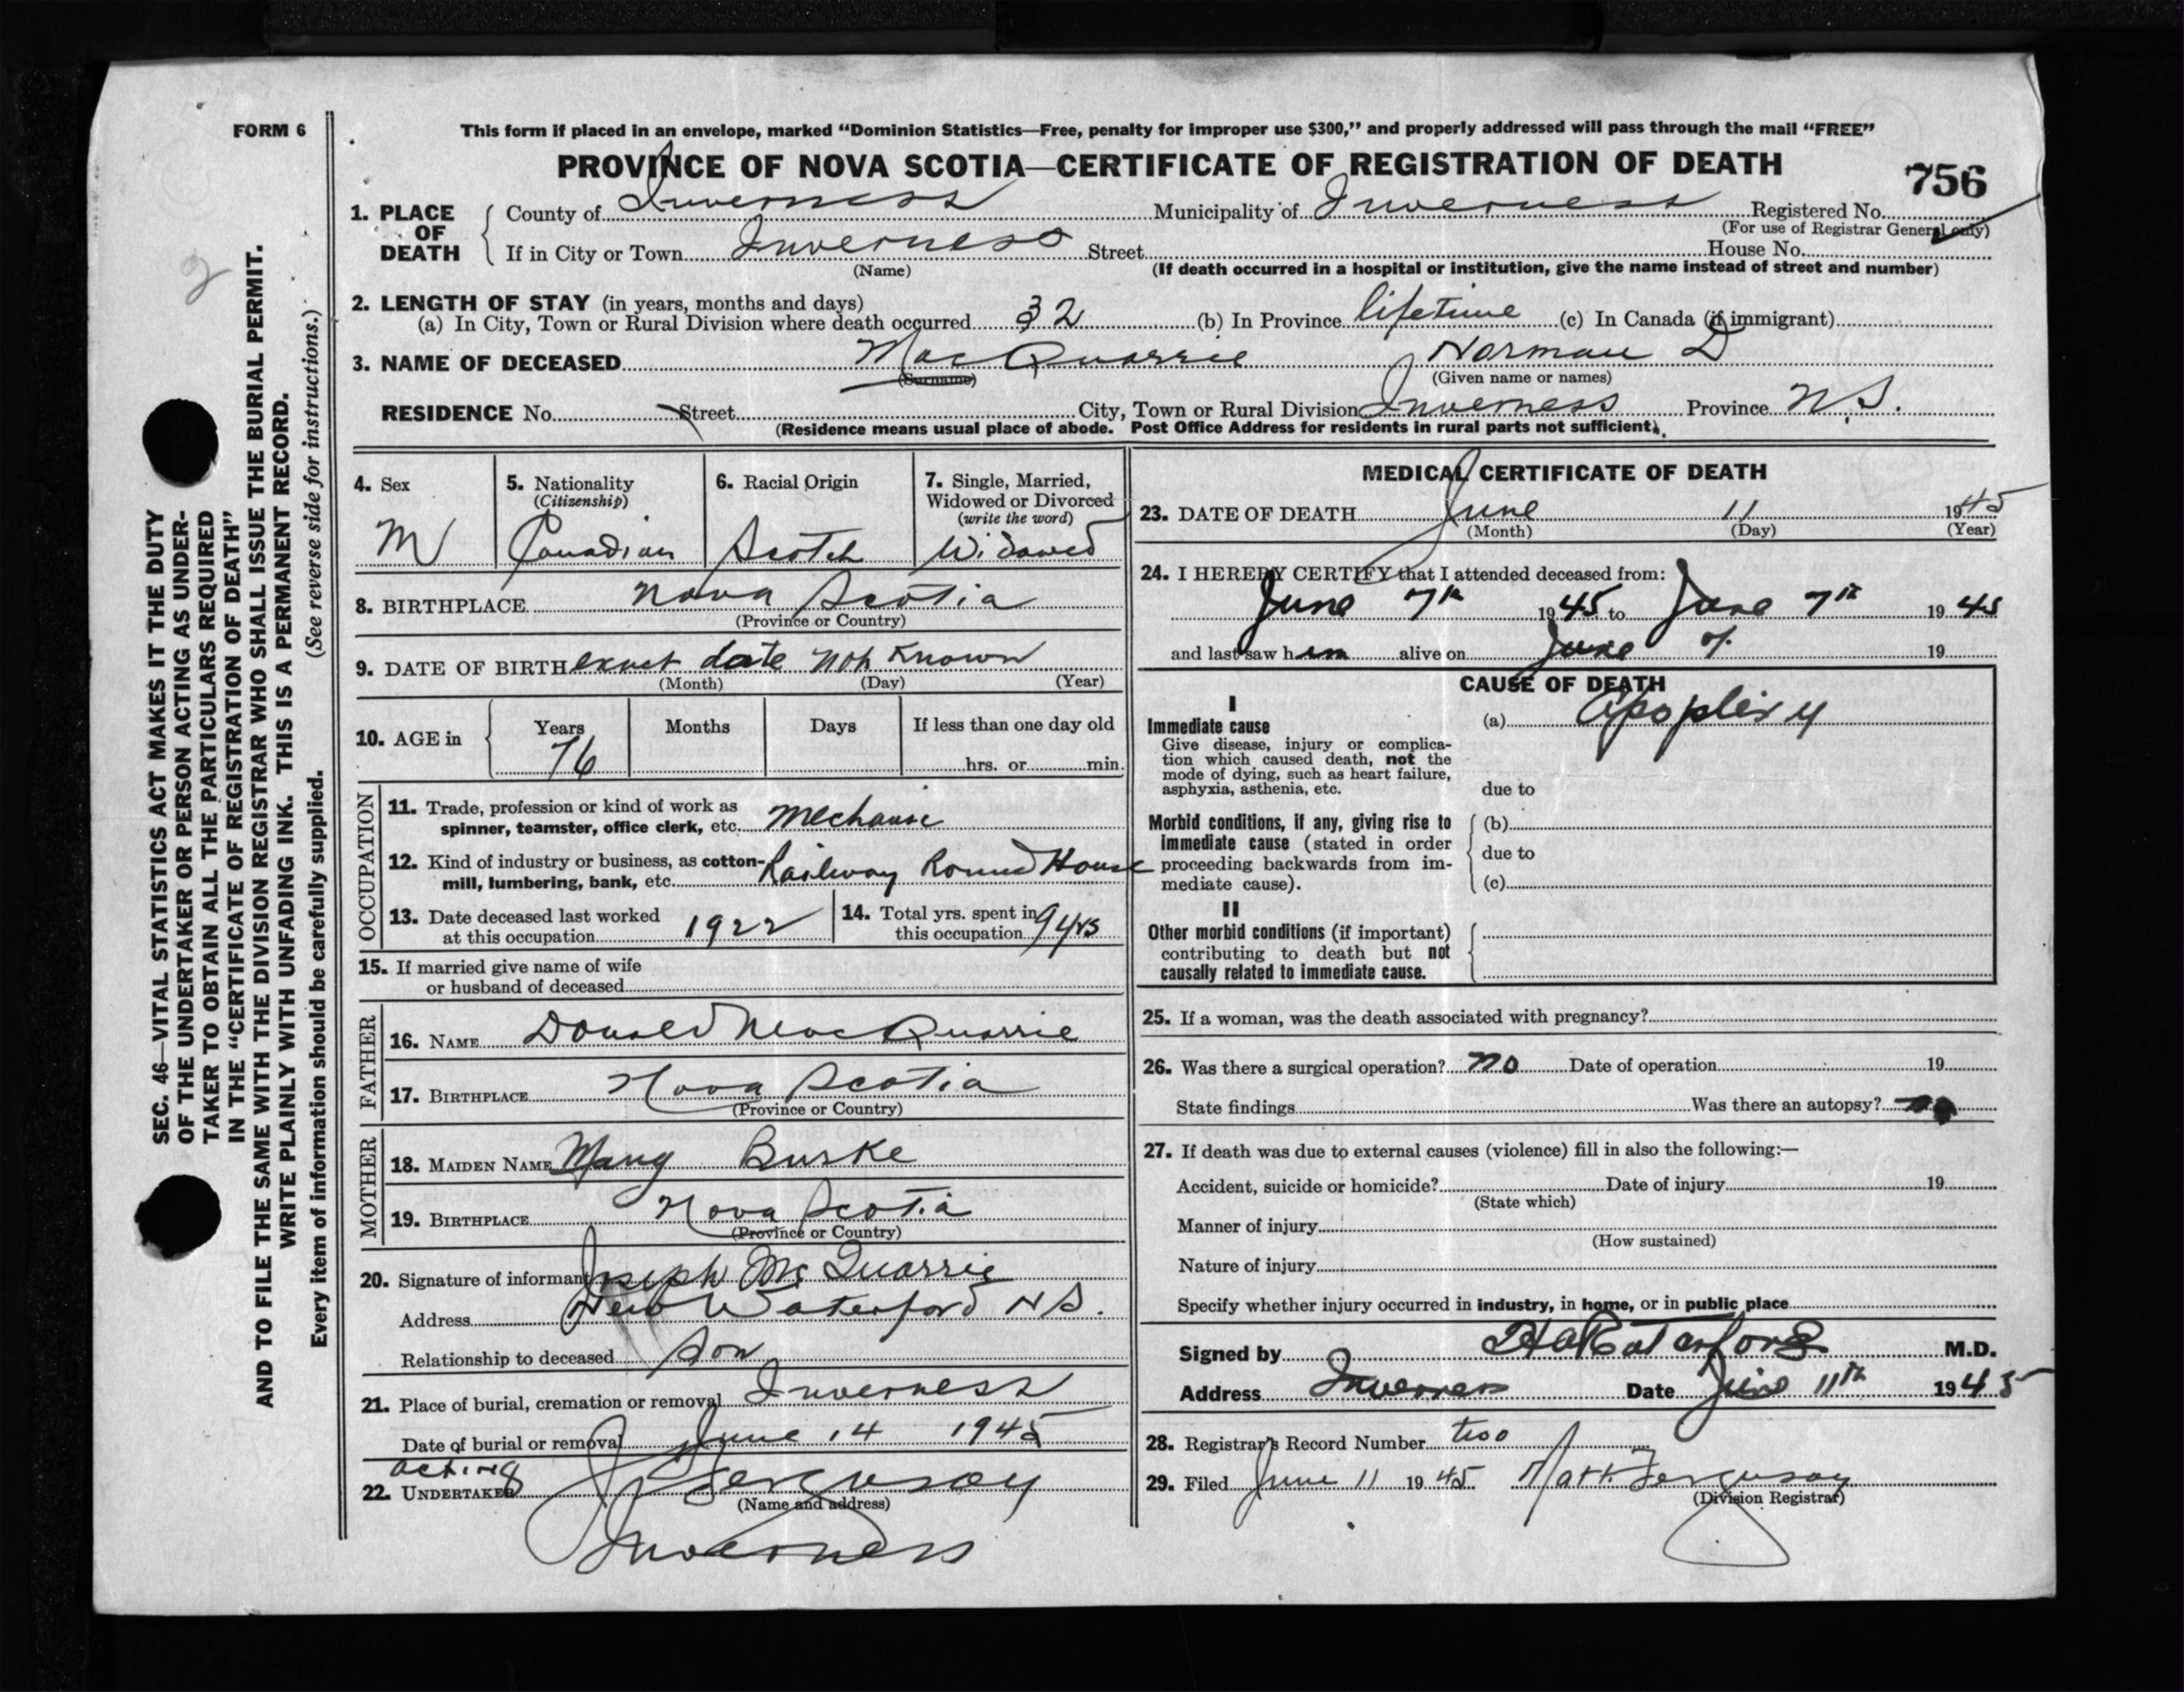 FORM 6
This form if placed in an envelope, marked "Dominion Statistics—Free, penalty for improper use $300," and properly addressed will pass through the mail "FREE"
PROVINCE OF NOVA SCOTIA—CERTIFICATE OF REGISTRATION OF DEATH
756
1. PLACE OF DEATH
County of Inverness Municipality of Inverness Registered No.
(For use of Registrar General only)
If in City or Town Inverness Street House No.
(Name) (If death occurred in a hospital or institution, give the name instead of street and number)
2. LENGTH OF STAY (in years, months and days)
(a) In City, Town or Rural Division where death occurred 32 (b) In Province lifetime (c) In Canada (if immigrant)
3. NAME OF DECEASED MacQuarrie Norman D
(Surname) (Given name or names)
RESIDENCE No. Street City, Town or Rural Division Inverness Province N.S.
(Residence means usual place of abode. Post Office Address for residents in rural parts not sufficient).
4. Sex
M
5. Nationality
(Citizenship)
Canadian
6. Racial Origin
Scotch
7. Single, Married,
Widowed or Divorced
(write the word)
Widowed
8. BIRTHPLACE Nova Scotia
(Province or Country)
9. DATE OF BIRTH exact date not known
(Month) (Day) (Year)
10. AGE in Years Months Days If less than one day old
76 hrs. or min.
OCCUPATION
11. Trade, profession or kind of work as
spinner, teamster, office clerk, etc. mechanic
12. Kind of industry or business, as cotton-
mill, lumbering, bank, etc. Railway Round House
13. Date deceased last worked
at this occupation 1922
14. Total yrs. spent in
this occupation 9 yrs
15. If married give name of wife
or husband of deceased
FATHER
16. NAME Donald MacQuarrie
17. BIRTHPLACE Nova Scotia
(Province or Country)
MOTHER
18. MAIDEN NAME Mary Burke
19. BIRTHPLACE Nova Scotia
(Province or Country)
20. Signature of informant Joseph Mc Quarrie
Address New Waterford N S.
Relationship to deceased Son
21. Place of burial, cremation or removal Inverness
Date of burial or removal June 14 1945
acting
22. UNDERTAKER J Ferguson
(Name and address)
Inverness
MEDICAL CERTIFICATE OF DEATH
23. DATE OF DEATH June 11 1945
(Month) (Day) (Year)
24. I HEREBY CERTIFY that I attended deceased from:
June 7th 1945 to June 7th 1945
and last saw him alive on June 7. 19
CAUSE OF DEATH
I
Immediate cause
Give disease, injury or complica-
tion which caused death, not the
mode of dying, such as heart failure,
asphyxia, asthenia, etc.
(a) Apoplexy
due to
Morbid conditions, if any, giving rise to
immediate cause (stated in order
proceeding backwards from im-
mediate cause).
(b)
due to
(c)
II
Other morbid conditions (if important)
contributing to death but not
causally related to immediate cause.
25. If a woman, was the death associated with pregnancy?
26. Was there a surgical operation? no Date of operation 19
State findings Was there an autopsy? no
27. If death was due to external causes (violence) fill in also the following:—
Accident, suicide or homicide? Date of injury 19
(State which)
Manner of injury
(How sustained)
Nature of injury
Specify whether injury occurred in industry, in home, or in public place
Signed by M.D.
Address Inverness Date June 11th 1945
28. Registrar's Record Number two
29. Filed June 11 1945 Matt Ferguson
(Division Registrar)
2
SEC. 46—VITAL STATISTICS ACT MAKES IT THE DUTY
OF THE UNDERTAKER OR PERSON ACTING AS UNDER-
TAKER TO OBTAIN ALL THE PARTICULARS REQUIRED
IN THE "CERTIFICATE OF REGISTRATION OF DEATH"
AND TO FILE THE SAME WITH THE DIVISION REGISTRAR WHO SHALL ISSUE THE BURIAL PERMIT.
WRITE PLAINLY WITH UNFADING INK. THIS IS A PERMANENT RECORD.
Every item of information should be carefully supplied. (See reverse side for instructions.)